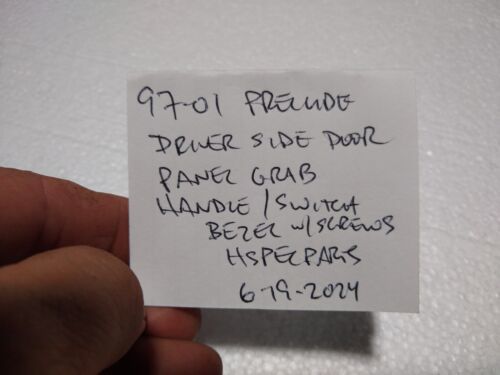 97-01 PRELUDE
DRIVER SIDE DOOR
PANEL GRAB
HANDLE / SWITCH
BEZEL w/ SCREWS
HSPECPARTS
6-19-2024